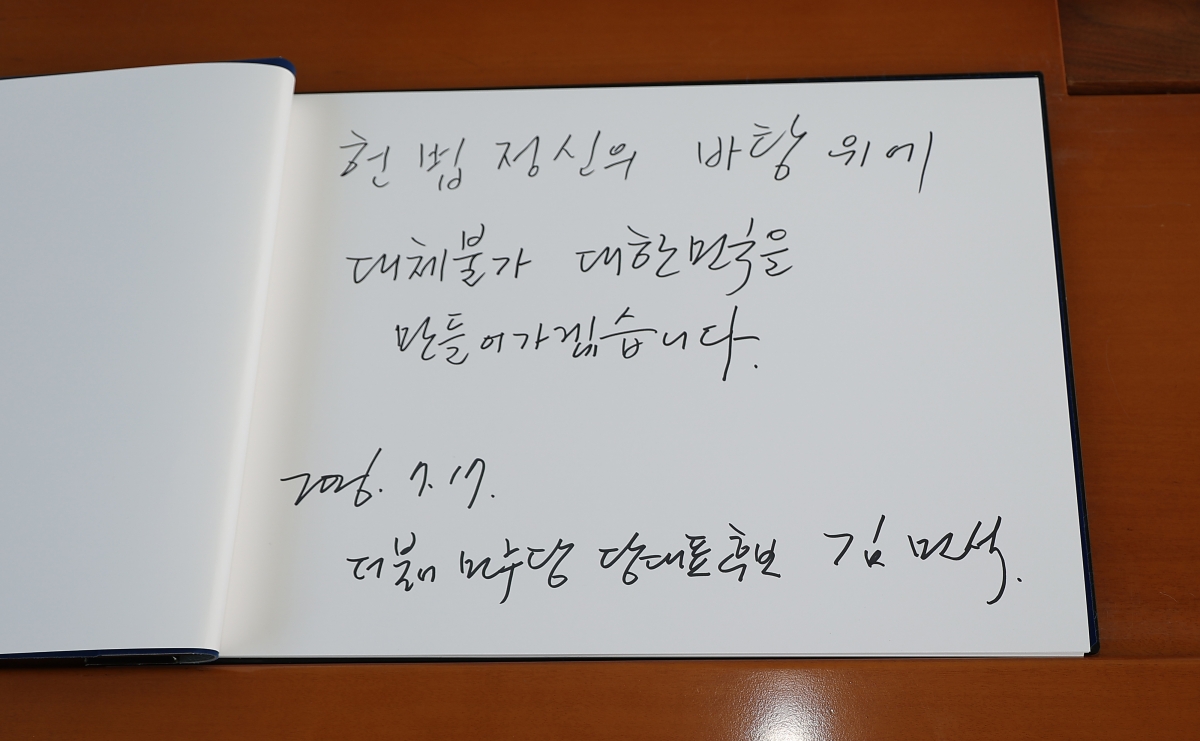 헌법정신의 바탕 위에
대체불가 대한민국을
만들어가겠습니다.
2026. 7. 17.
더불어 민주당 당대표 후보 김민석.